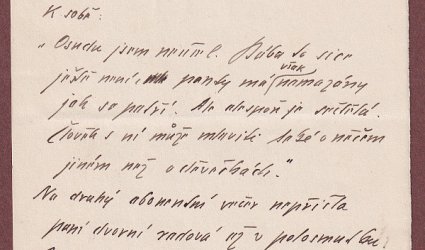 K sobě:
„Osudu jsem neušel. Bába to sice
ještě není panty má však nemazány
jak se patří. Ale alespoň je sečtělá.
Člověk s ní může mluviti také o něčem
jiném než o děvečkách."
Na druhý abonentní večer nepřišla
paní dvorní radová než v polosmutku.